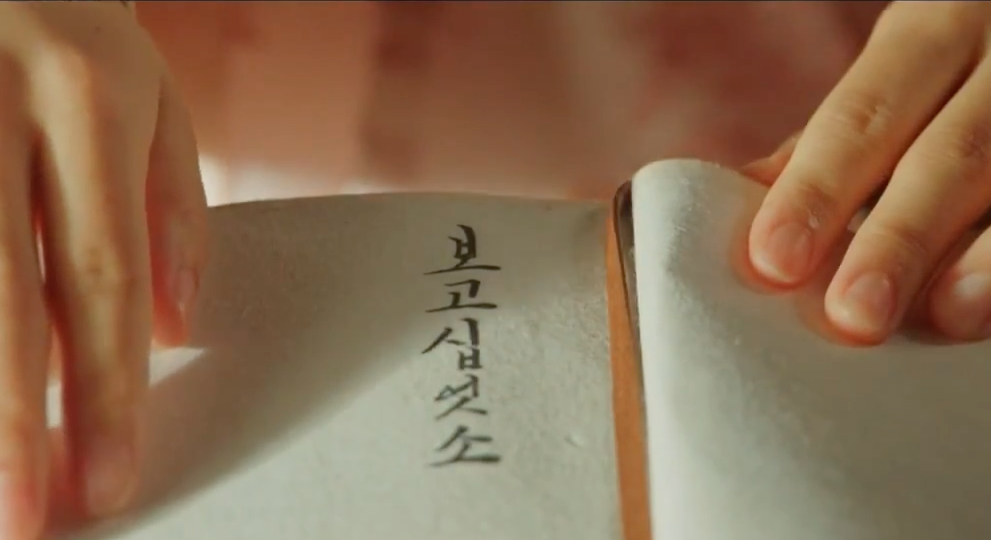 보고십엇소